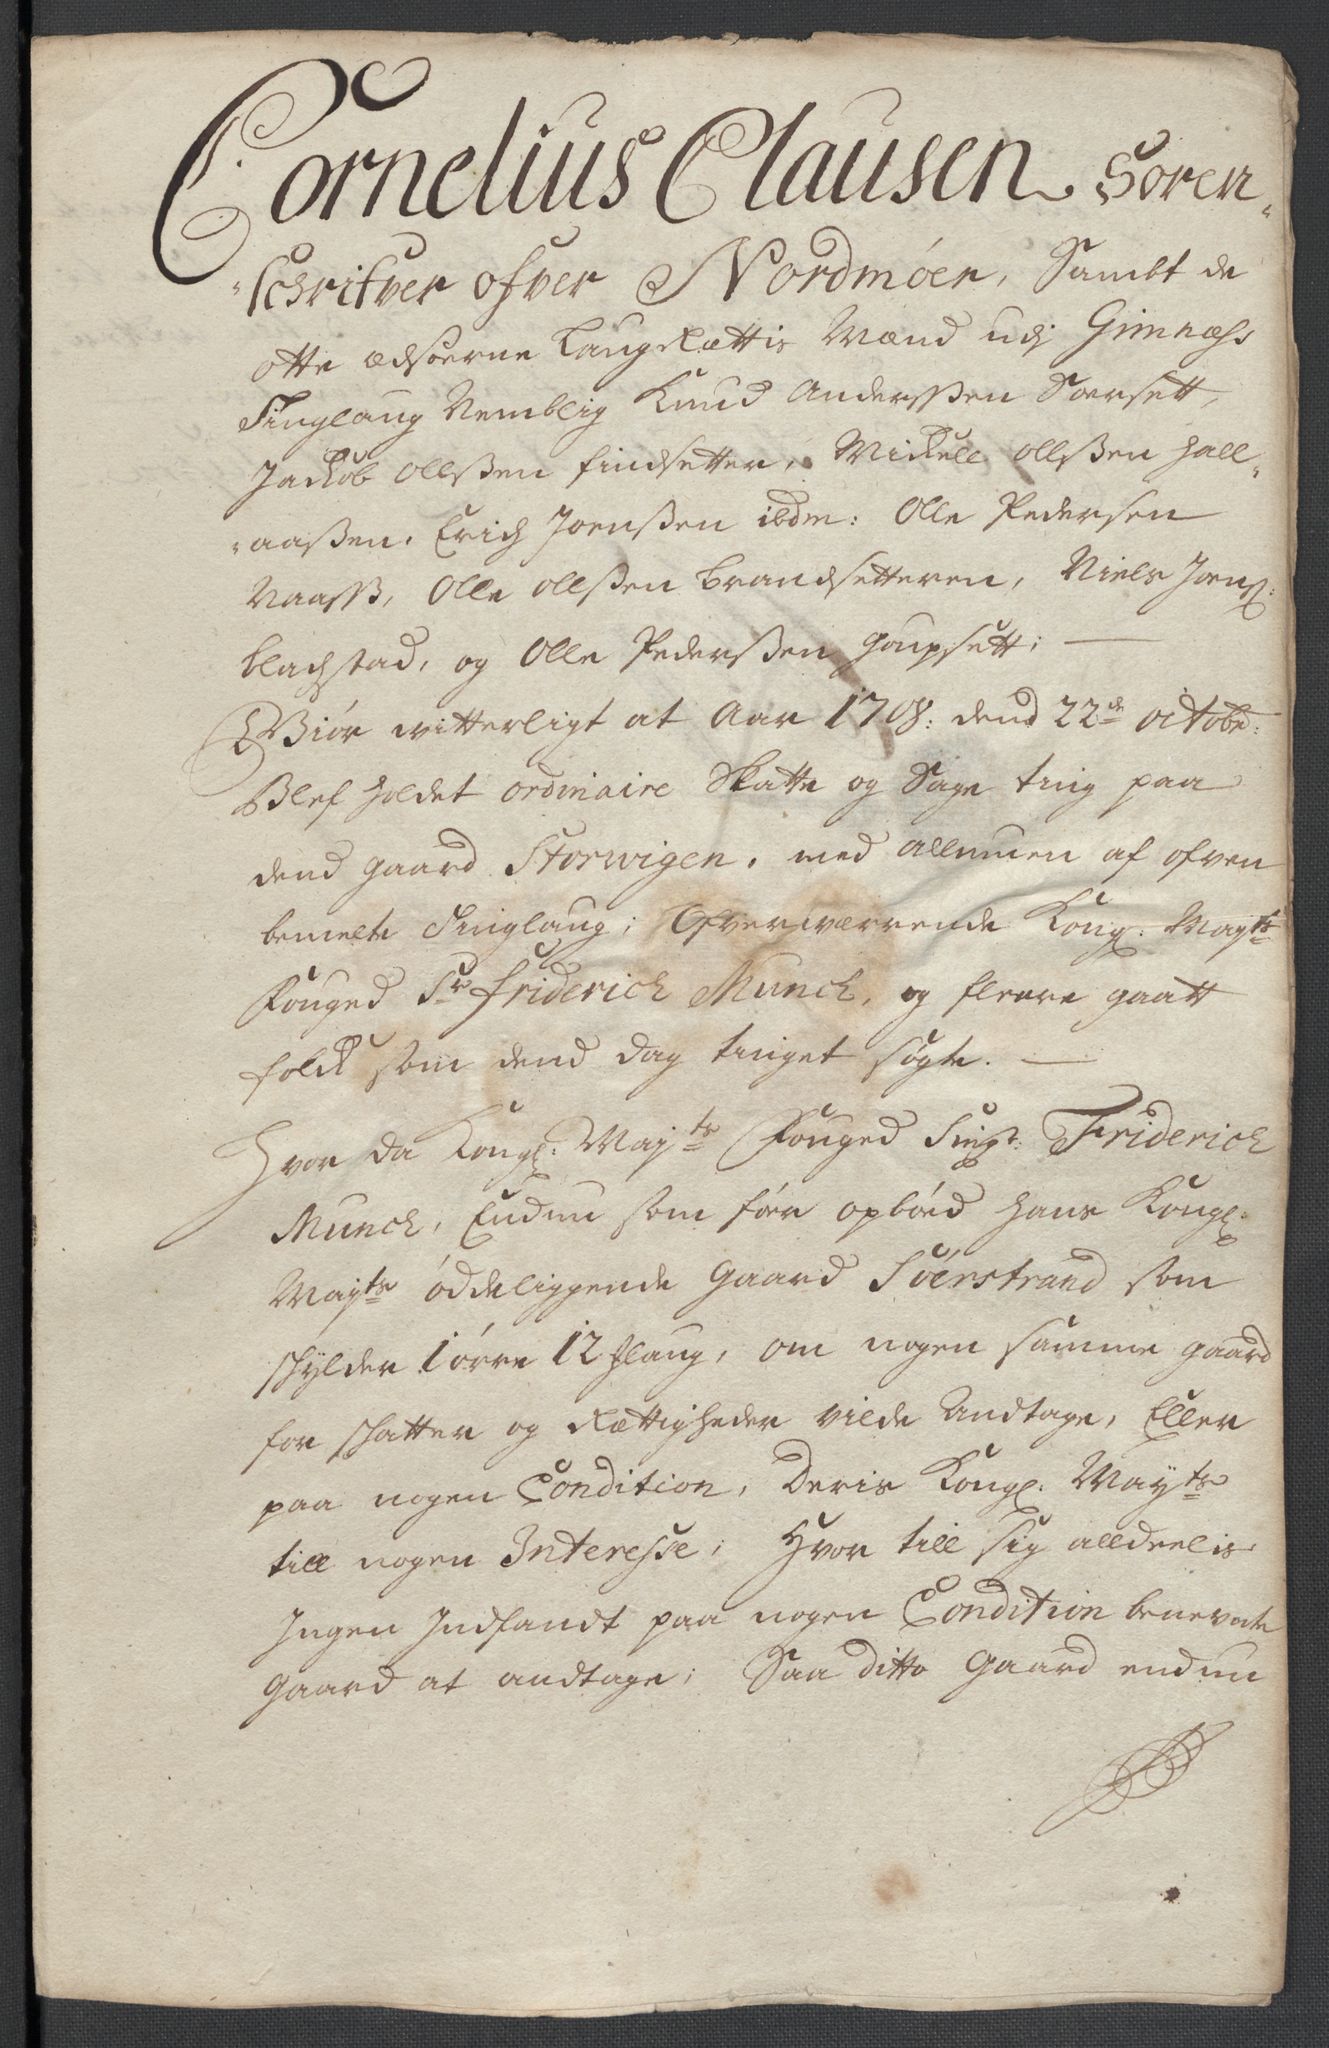 Cornelius Clausen Soren-
schrifver ofver Nordmöer, Sambt de
otte Edsoerne Laugrættis Mænd udj Gimnæhs
Tinglaug Nemblig Knud Anderssen Sersett,
Jachob Olsßen findsetter, Michell Olsßen Hall-
aaßen, Erich Joensßen ibdm: Olle Pedersen
Naaß, Olle Olsßen Brandsetteren, Niels Joenß:
blachstad, og Olle Pedersßen Gaupsett;
Giör witterligt at Aar 1708: dend 22de octobr:
Blef holdet ordinaire Skatte og Sage ting paa
dend gaard Storwigen, med allmuen af ofven
bemelte Tinglaug; Ofverwærrende Kongl: Mayts
Fouged Sr Friderich Munch, og fleere gaatt
folch som dend dag tinget søgte.
Hvor da Kongl: Mayts Fouged Sinr: Friderich
Munch, Endnu som för opböed hans Kongl:
Mayts øddeliggende Gaard Söerstrand som
schylder 1 örre 12 Mlaug, om nogen samme gaard
for schatter og Rættigheder vilde Andtage, Eller
paa nogen Condition, Deris Kongl: Mayts
till nogen Interesse; Hvor till sig alldeelis
Ingen Indfandt paa nogen Condition benevnte
Gaard at andtage; Saa ditto Gaard endnu